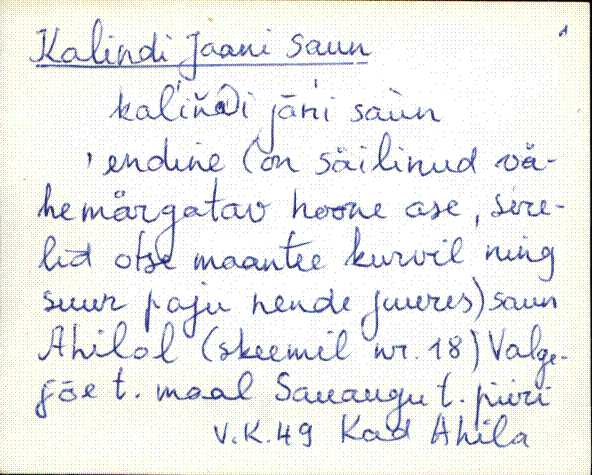 Kalindi Jaani saun
jāni saun
endine (on säilinud vä-
hemärgatav hoone ase, sire-
lid otse maantee kurvil ning
suur paju nende juures) saun
Ahilal (skeemil nr. 18) Valge-
jõe t. maal Sauaugu t. piiri
V.K. 49 Kad Ahila